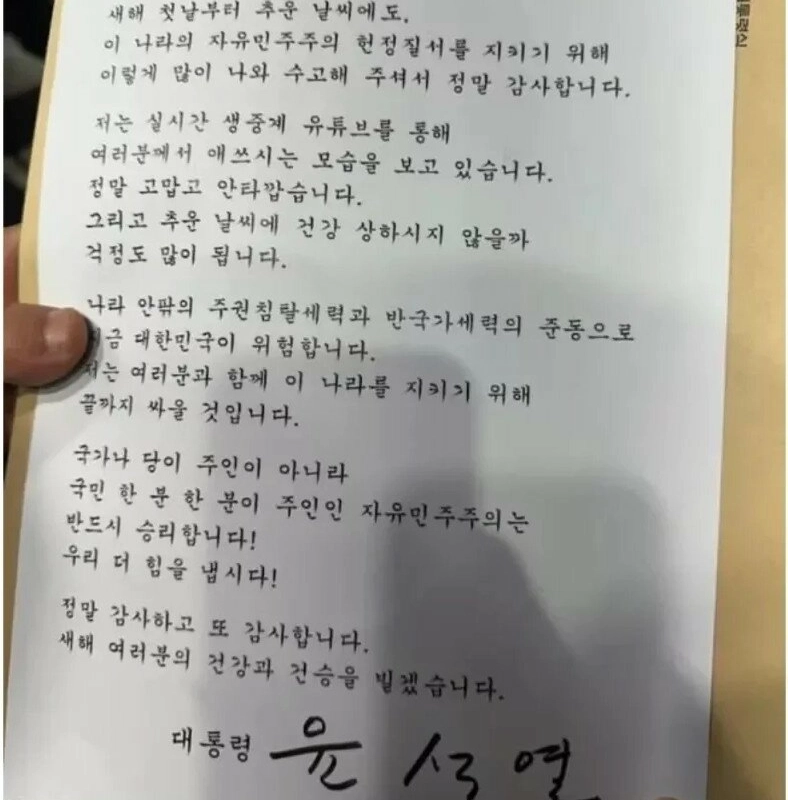 새해 첫날부터 추운 날씨에도,
이 나라의 자유민주주의 헌정질서를 지키기 위해
이렇게 많이 나와 수고해 주셔서 정말 감사합니다.
저는 실시간 생중계 유튜브를 통해
여러분께서 애쓰시는 모습을 보고 있습니다.
정말 고맙고 안타깝습니다.
그리고 추운 날씨에 건강 상하시지 않을까
걱정도 많이 됩니다.
나라 안팎의 주권침탈세력과 반국가세력의 준동으로
지금 대한민국이 위험합니다.
저는 여러분과 함께 이 나라를 지키기 위해
끝까지 싸울 것입니다.
국가나 당이 주인이 아니라
국민 한 분 한 분이 주인인 자유민주주의는
반드시 승리합니다!
우리 더 힘을 냅시다!
정말 감사하고 또 감사합니다.
새해 여러분의 건강과 건승을 빌겠습니다.
대통령 윤석열